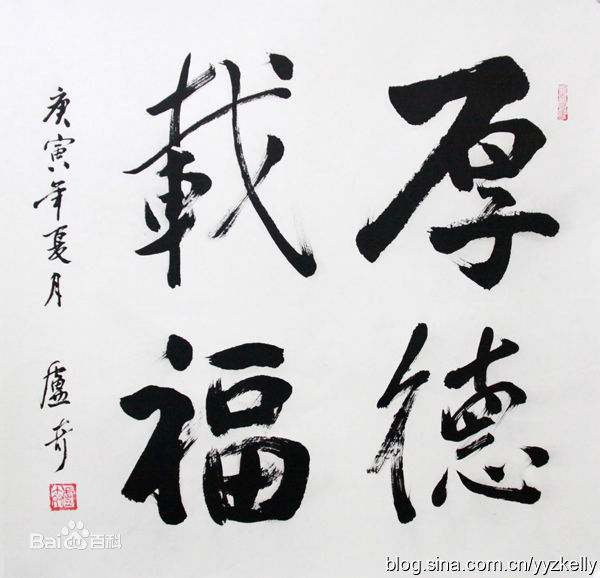 厚德
載福
庚寅年夏月 盧奇
Bai百科
blog.sina.com.cn/yyzkelly